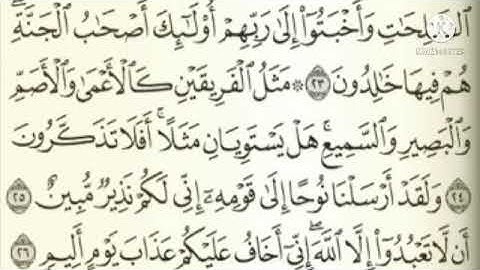 ٱلصَّٰلِحَٰتِ وَأَخْبَتُوٓا۟ إِلَىٰ رَبِّهِمْ أُو۟لَٰٓئِكَ أَصْحَٰبُ ٱلْجَنَّةِ ۖ
هُمْ فِيهَا خَٰلِدُونَ ٢٣ ۞ مَثَلُ ٱلْفَرِيقَيْنِ كَٱلْأَعْمَىٰ وَٱلْأَصَمِّ
وَٱلْبَصِيرِ وَٱلسَّمِيعِ ۚ هَلْ يَسْتَوِيَانِ مَثَلًا ۚ أَفَلَا تَذَكَّرُونَ
٢٤ وَلَقَدْ أَرْسَلْنَا نُوحًا إِلَىٰ قَوْمِهِۦٓ إِنِّى لَكُمْ نَذِيرٌ مُّبِينٌ ٢٥
أَن لَّا تَعْبُدُوٓا۟ إِلَّا ٱللَّهَ ۖ إِنِّىٓ أَخَافُ عَلَيْكُمْ عَذَابَ يَوْمٍ أَلِيمٍ ٢٦